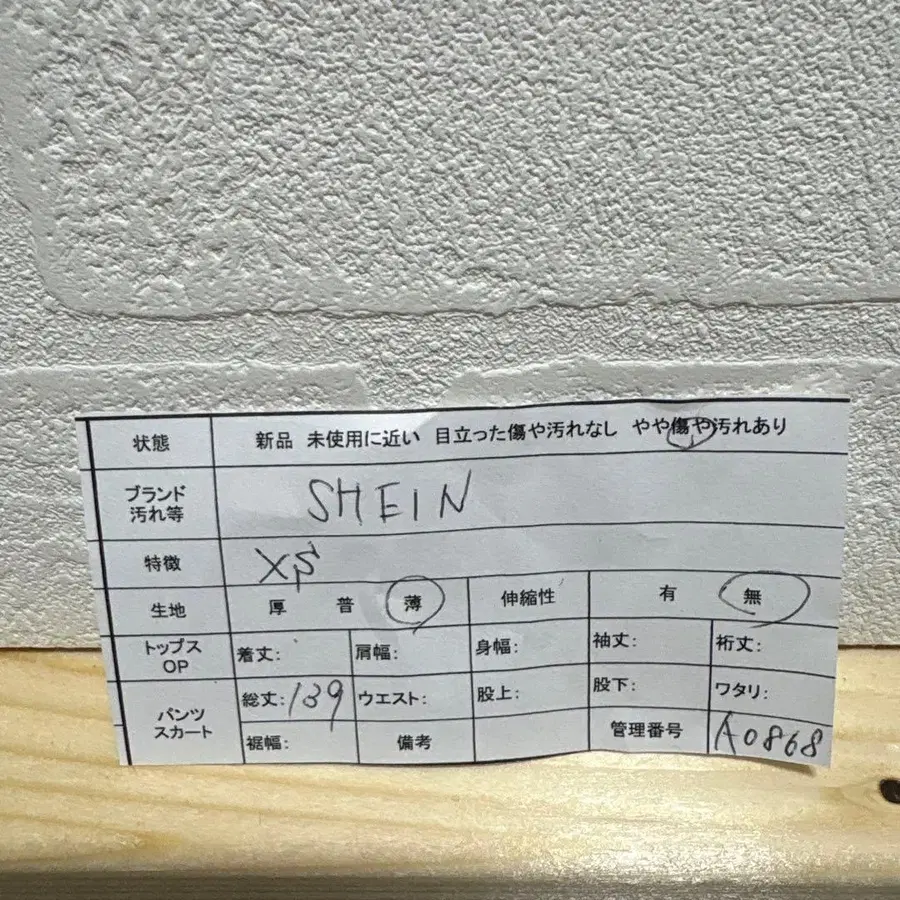 状態 新品 未使用に近い 目立った傷や汚れなし やや傷や汚れあり
ブランド
汚れ等
SHEIN
特徴 XS
生地 厚 普 薄 伸縮性 有 無
トップス
OP
着丈: 肩幅: 身幅: 袖丈: 裄丈:
パンツ
スカート
総丈:139 ウエスト: 股上: 股下: ワタリ:
裾幅: 備考 管理番号 A0868